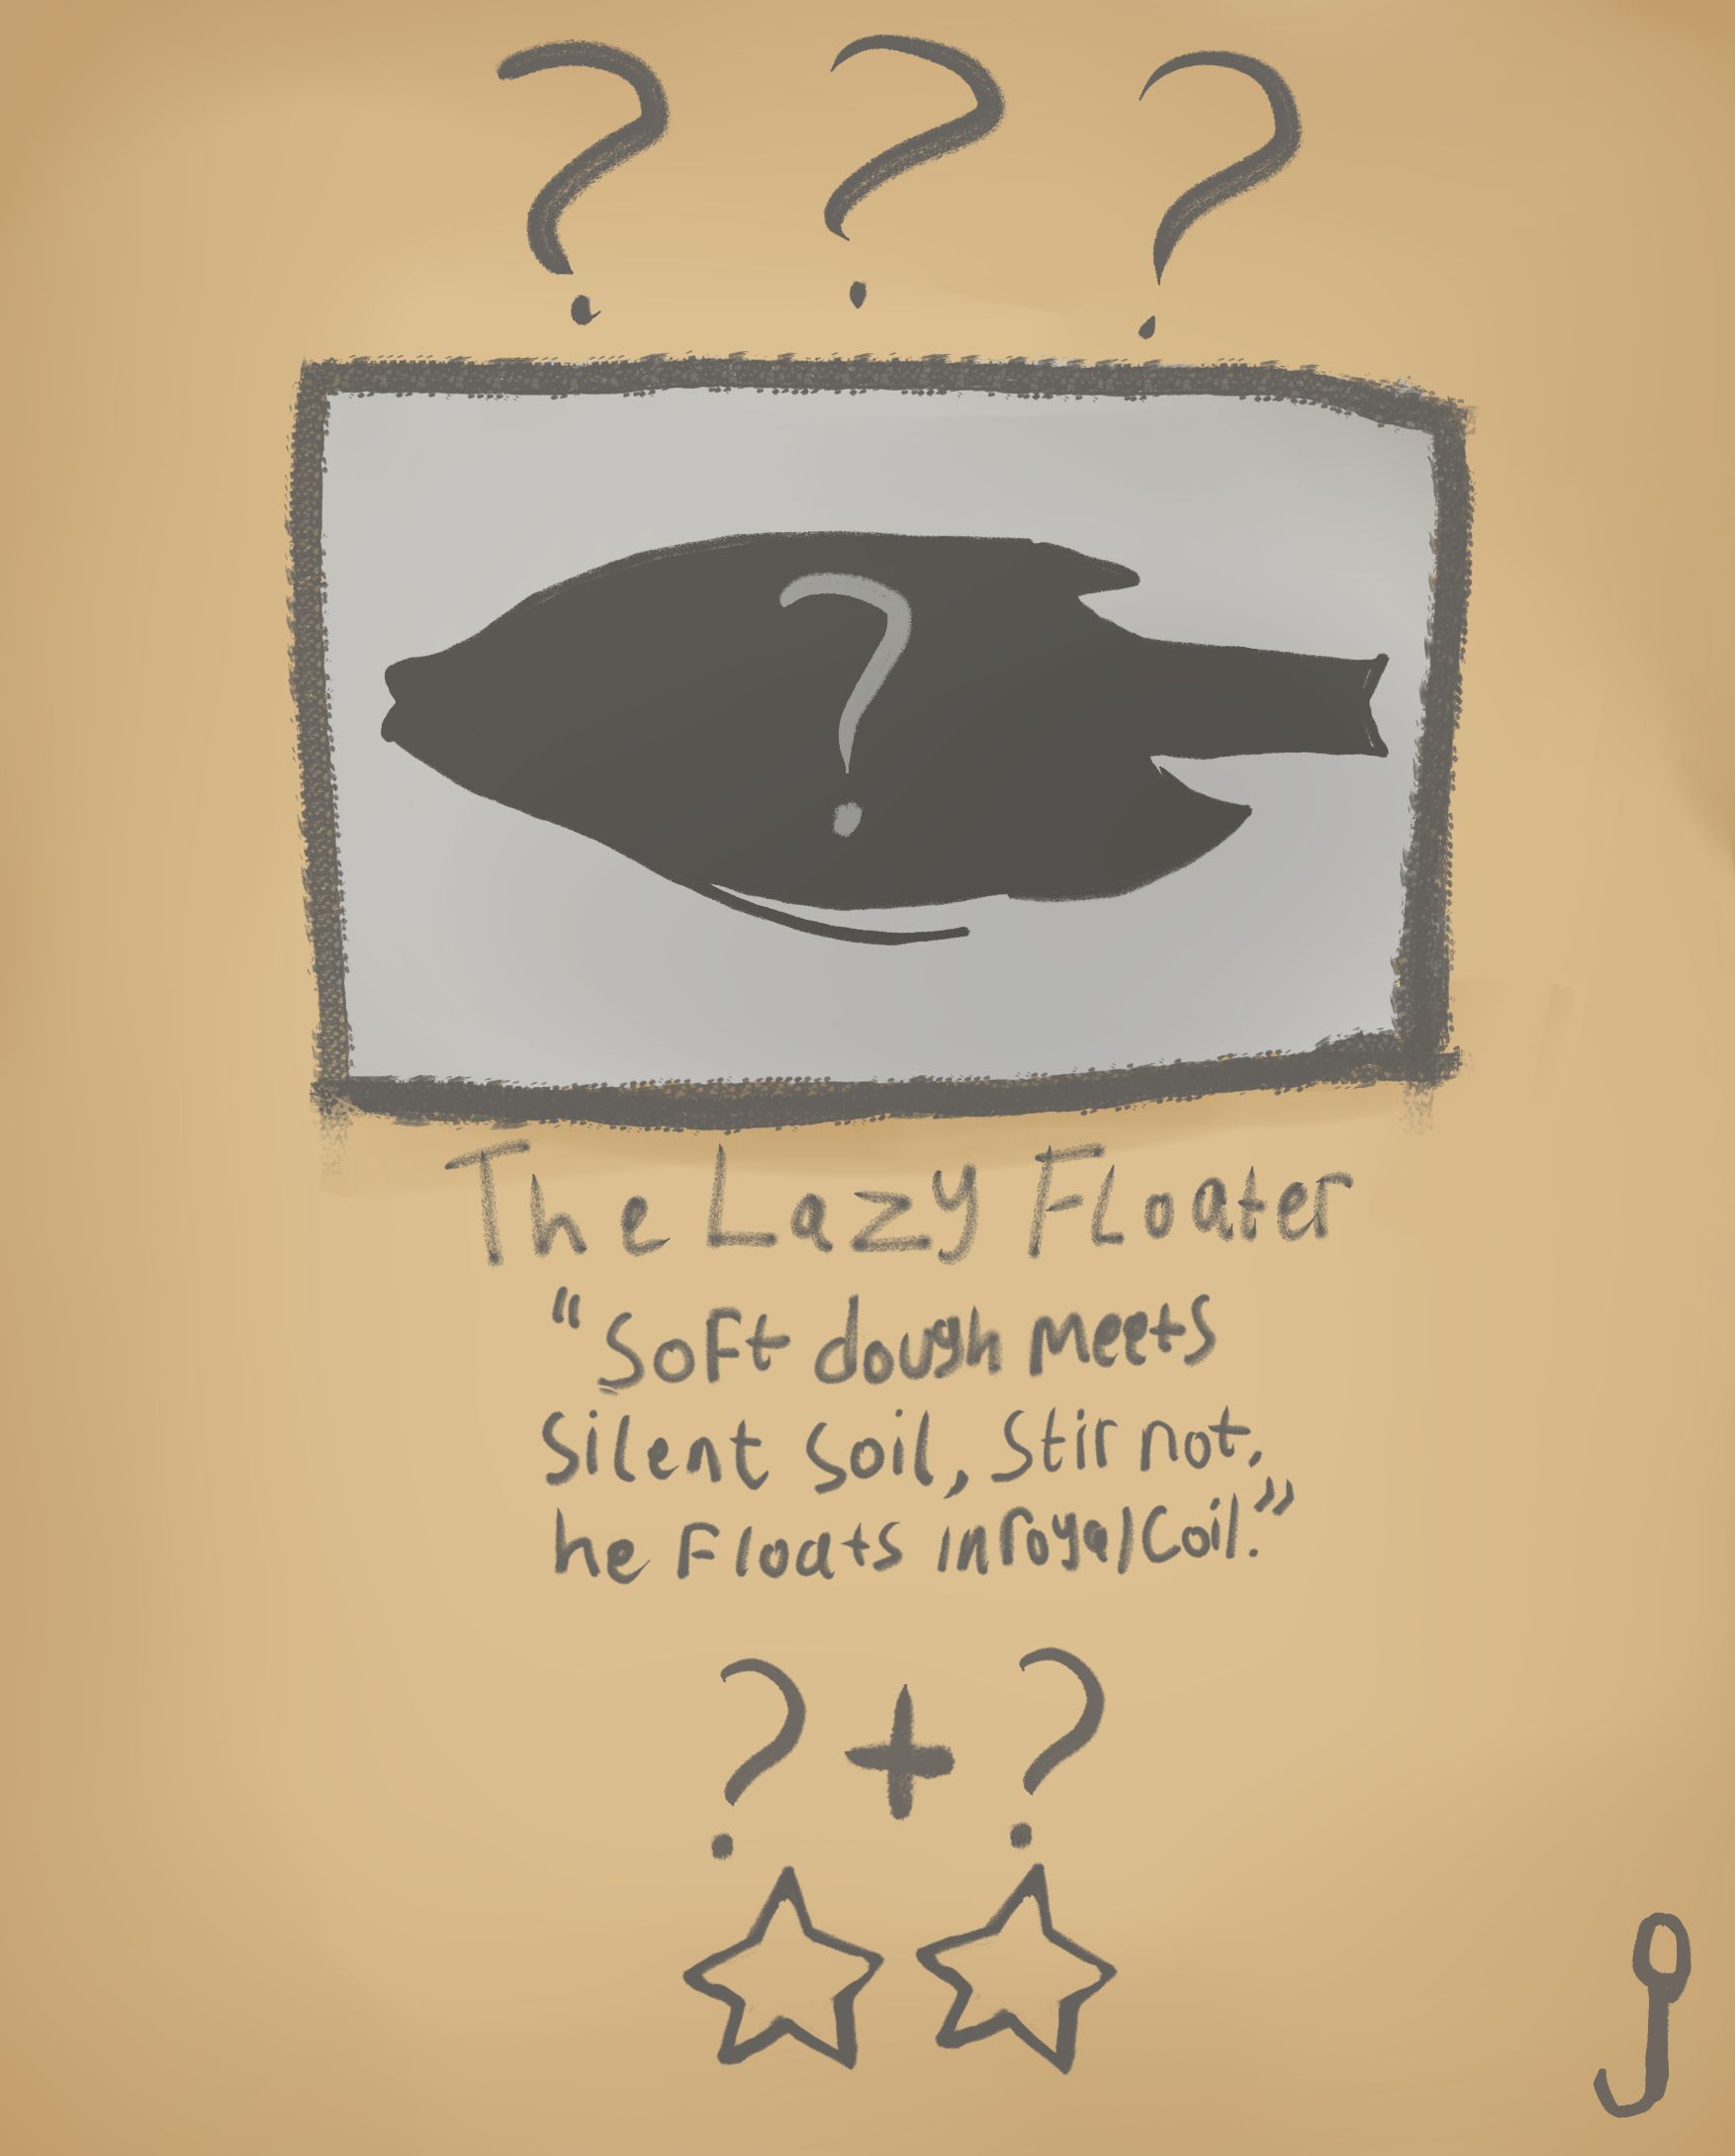 ? ? ?
?
The Lazy Floater
"Soft dough meets
Silent Soil, Stir not,
he Floats in royal Coil."
? + ?